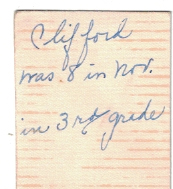 Clifford
was 8 in Nov.
in 3rd grade